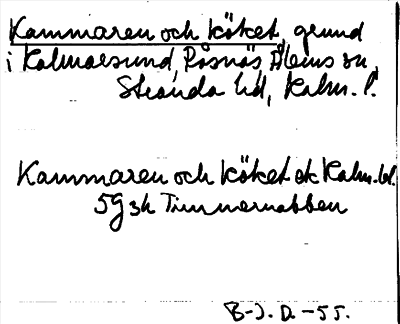 Kammaren och Köket, grund
i Kalmarsund, Påsnäs Ålems sn,
Stranda hd, Kalm. l.
Kammaren och Köket ek Kalm.bl.
5g3h Timmernabben
B-J. D. -55.